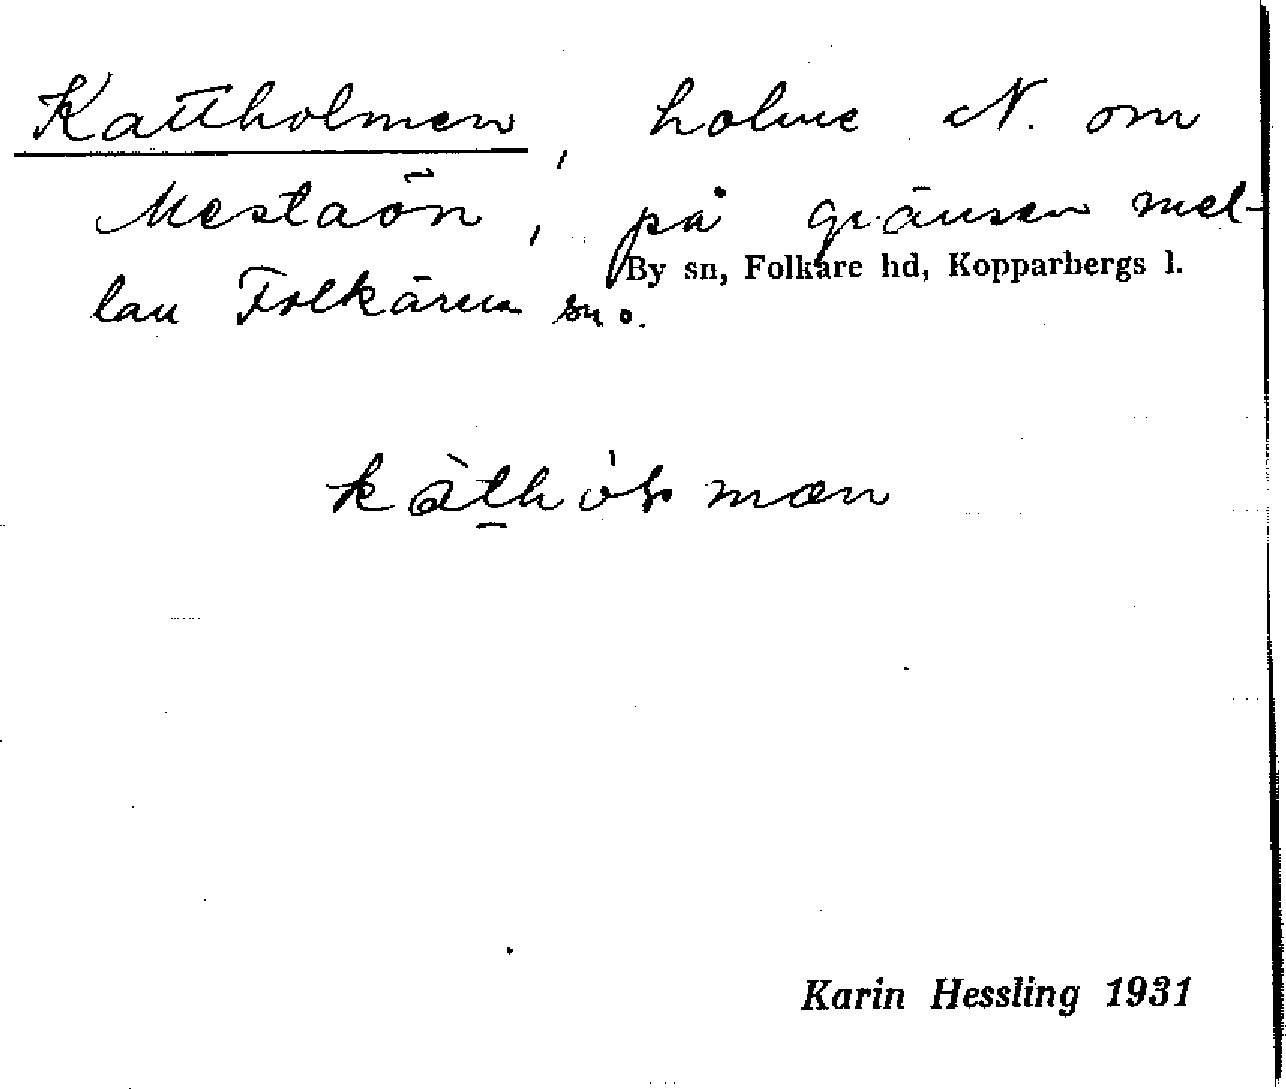 Kattholmen, holme N. om
Mestaön, på gränsen mel-
lan Folkärna sn o.
By sn, Folkare hd, Kopparbergs l.
kàt̠hòɫmæn
Karin Hessling 1931